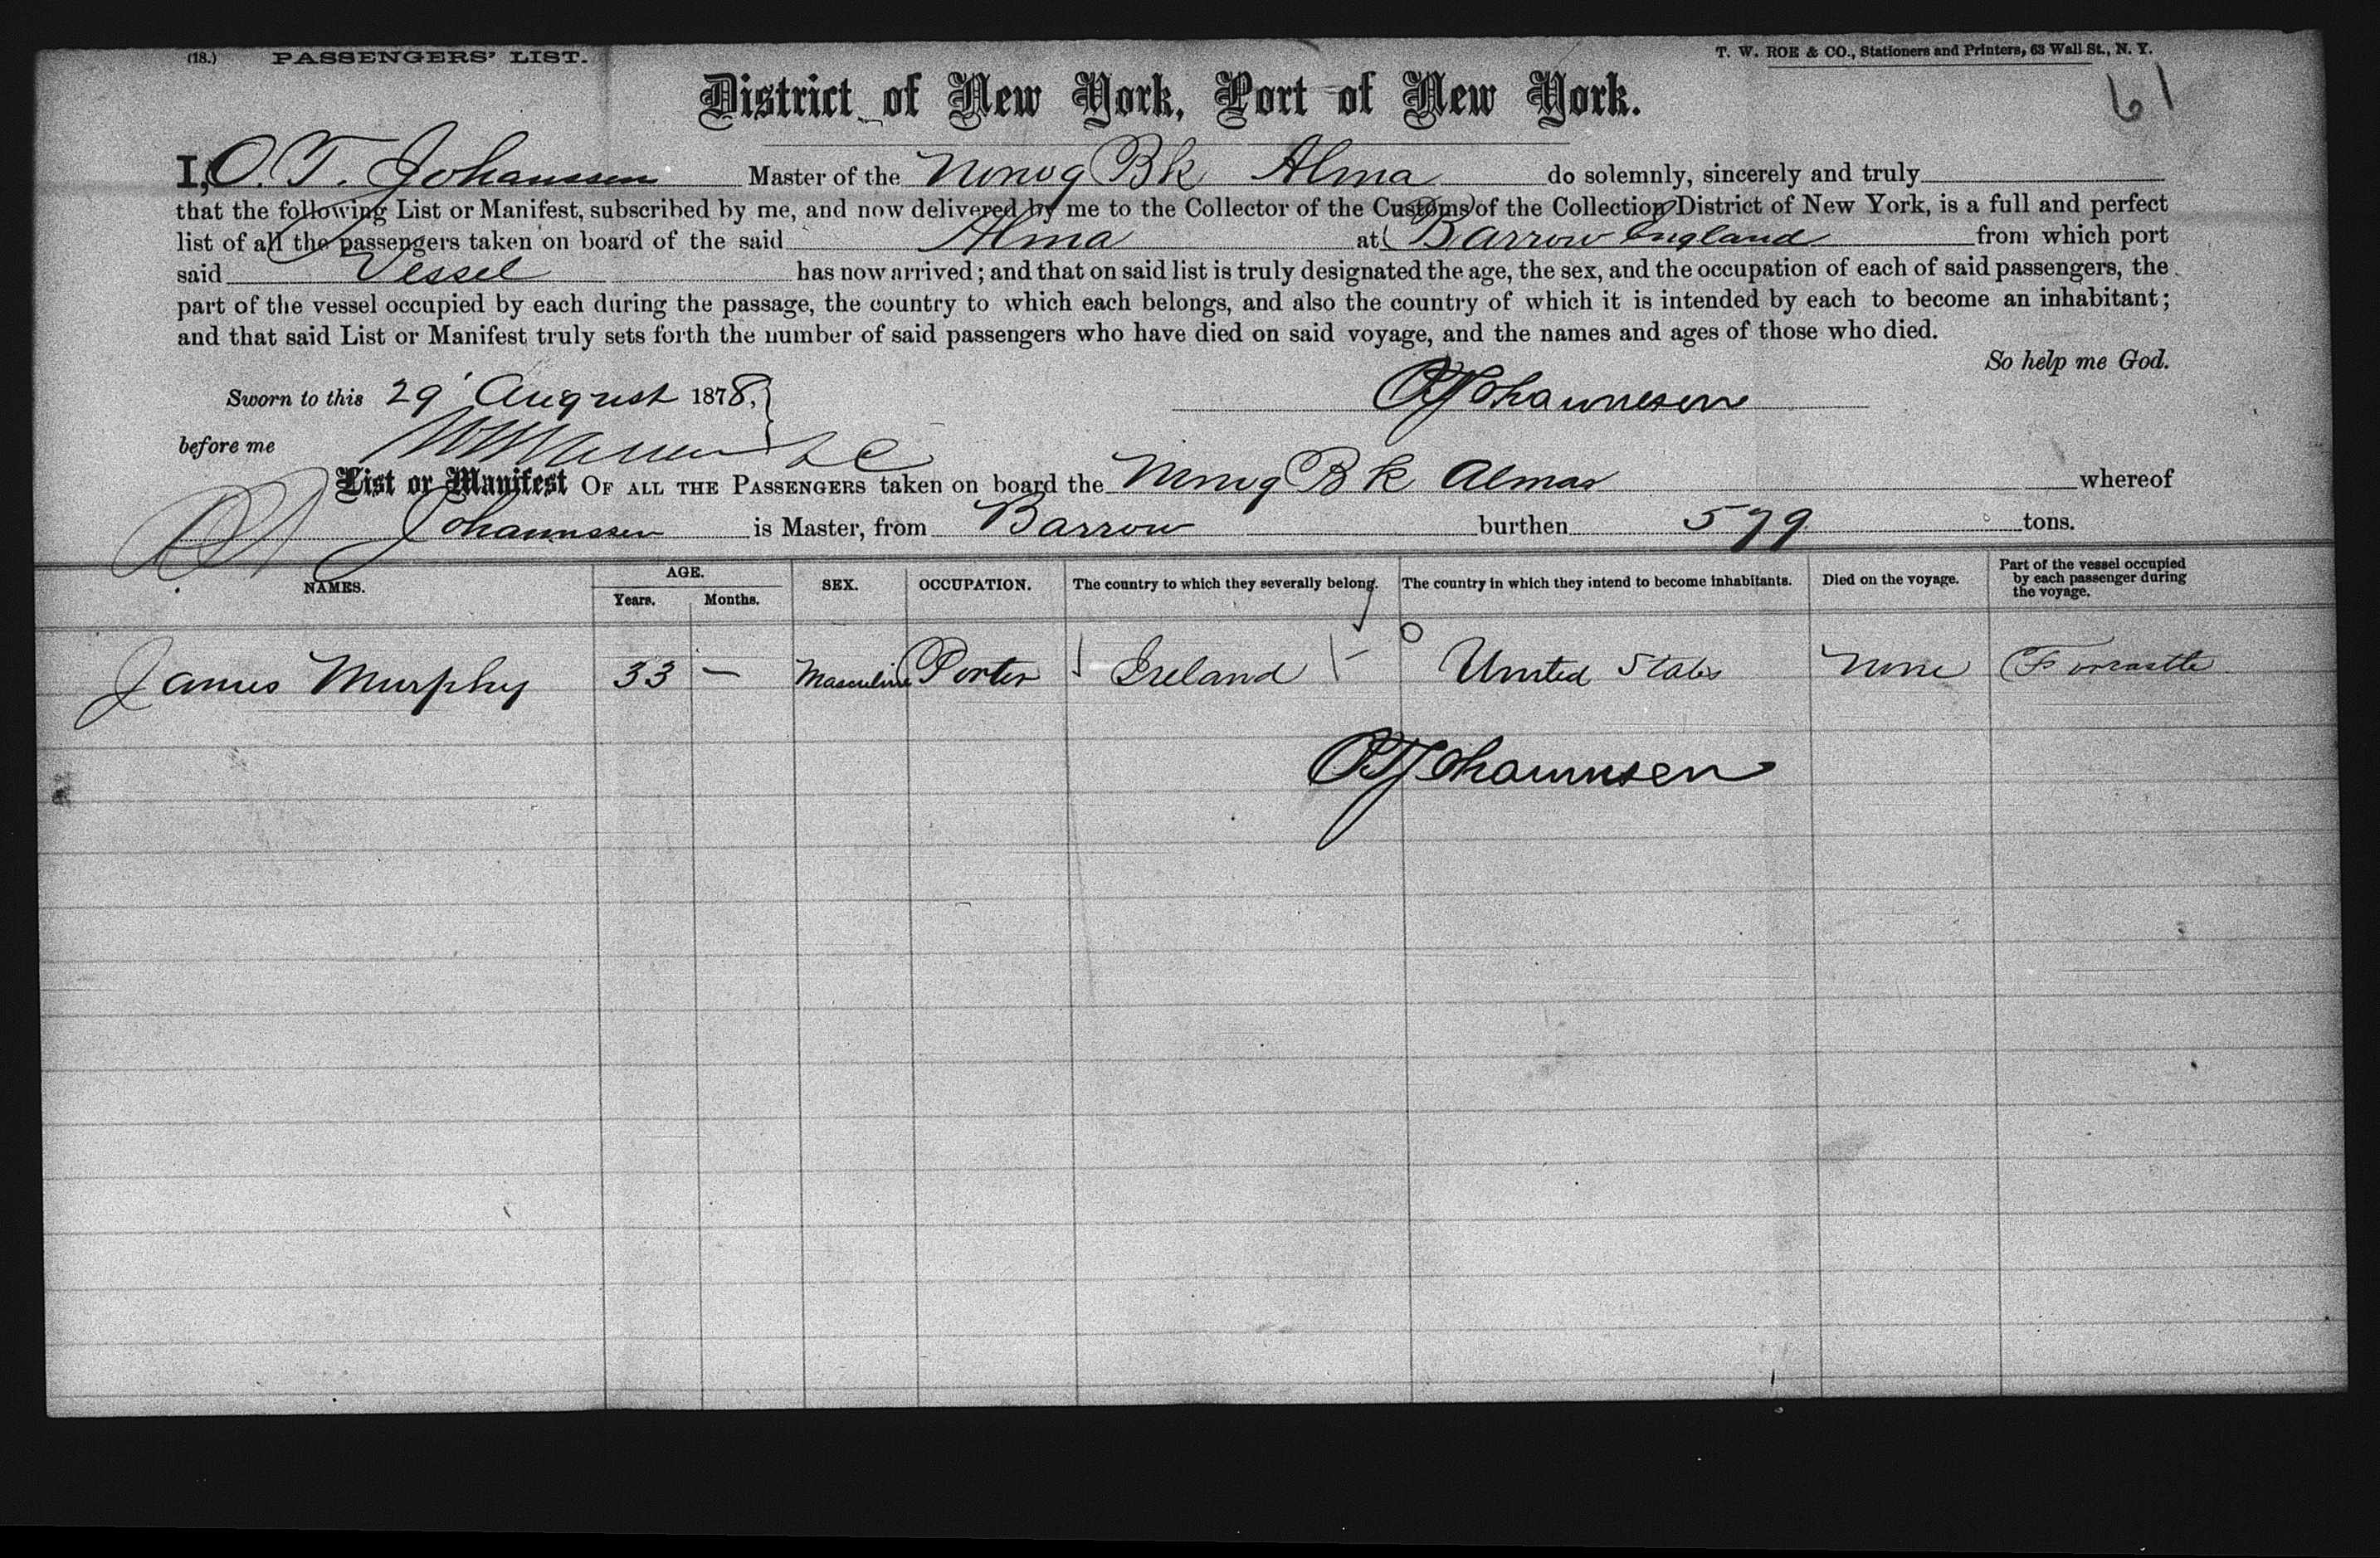 (18.) PASSENGERS' LIST.
T. W. ROE & CO., Stationers and Printers, 63 Wall St., N. Y.
61
District of New York, Port of New York.
I, O. T. Johanssen Master of the Norwg Bk Alma do solemnly, sincerely and truly
that the following List or Manifest, subscribed by me, and now delivered by me to the Collector of the Customs of the Collection District of New York, is a full and perfect
list of all the passengers taken on board of the said Alma at Barrow England from which port
said Vessel has now arrived; and that on said list is truly designated the age, the sex, and the occupation of each of said passengers, the
part of the vessel occupied by each during the passage, the country to which each belongs, and also the country of which it is intended by each to become an inhabitant;
and that said List or Manifest truly sets forth the number of said passengers who have died on said voyage, and the names and ages of those who died.
So help me God.
Sworn to this 29 August 1878,
OTJohannesen
before me
List or Manifest OF ALL THE PASSENGERS taken on board the Norwg Bk Alma whereof
OT Johannssen is Master, from Barrow burthen 579 tons.
NAMES. AGE. Years. Months. SEX. OCCUPATION. The country to which they severally belong. The country in which they intend to become inhabitants. Died on the voyage. Part of the vessel occupied by each passenger during the voyage.
James Murphy 33 — Masculine Porter Ireland United States None Forcastle
OTJohannsen